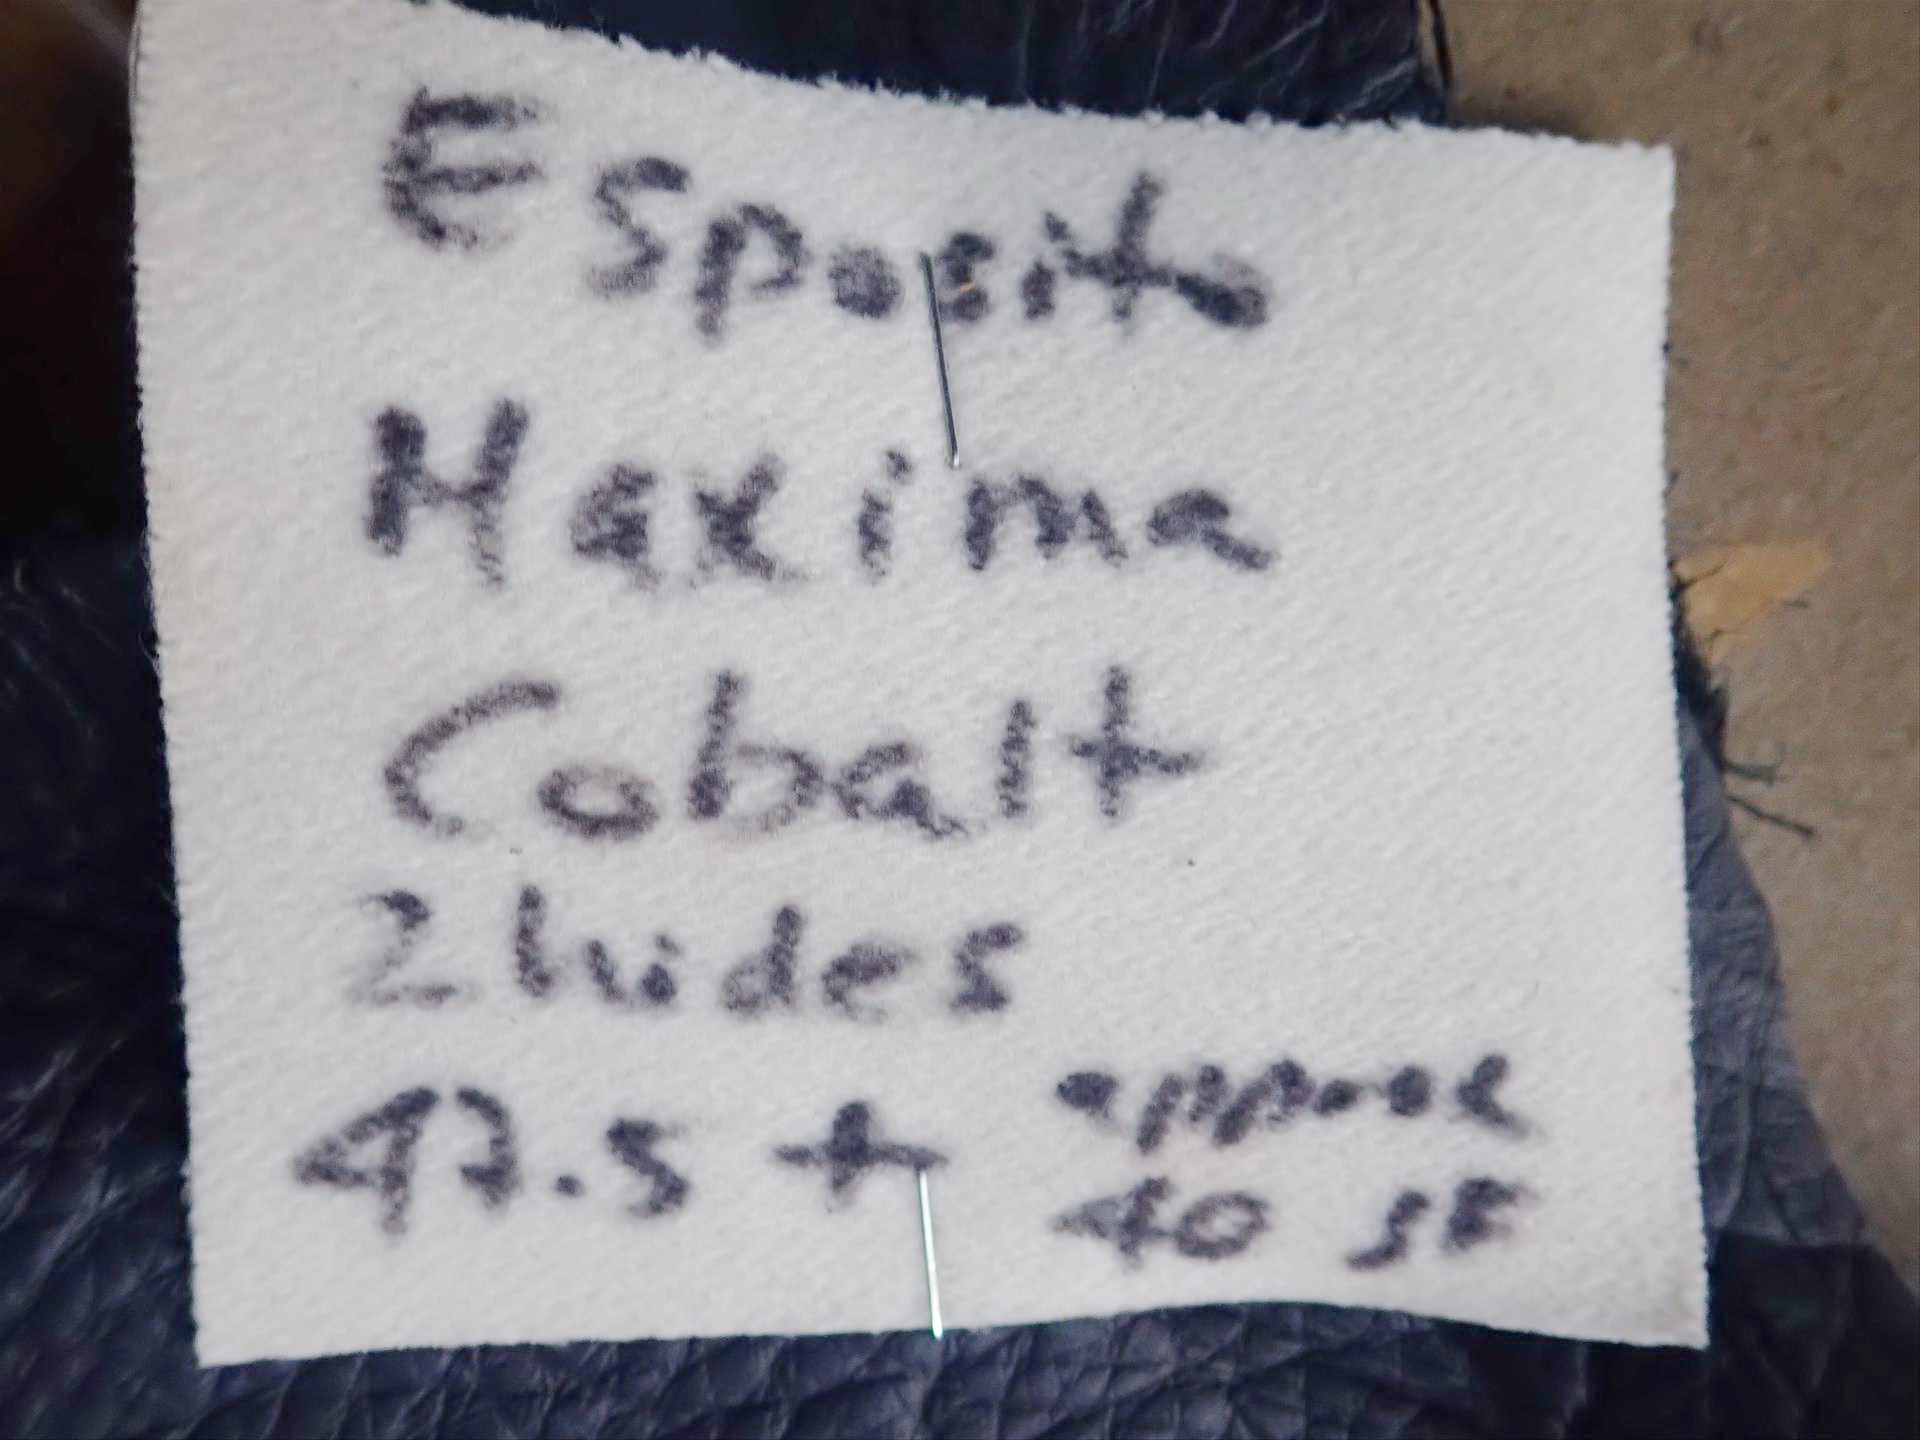 Esposito
Maxima
Cobalt
2 hides
47.5 + approx
40 SF